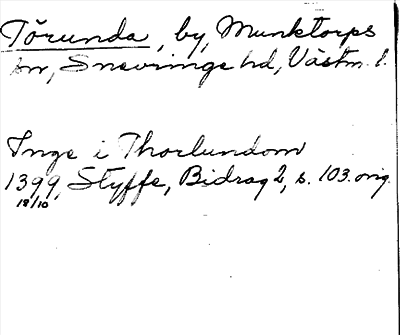 Törunda, by, Munktorps
sn, Snevringe hd, Västm. l.
Inge i Thorlundom
1399, Styffe, Bidrag 2, s. 103. orig.
18/10